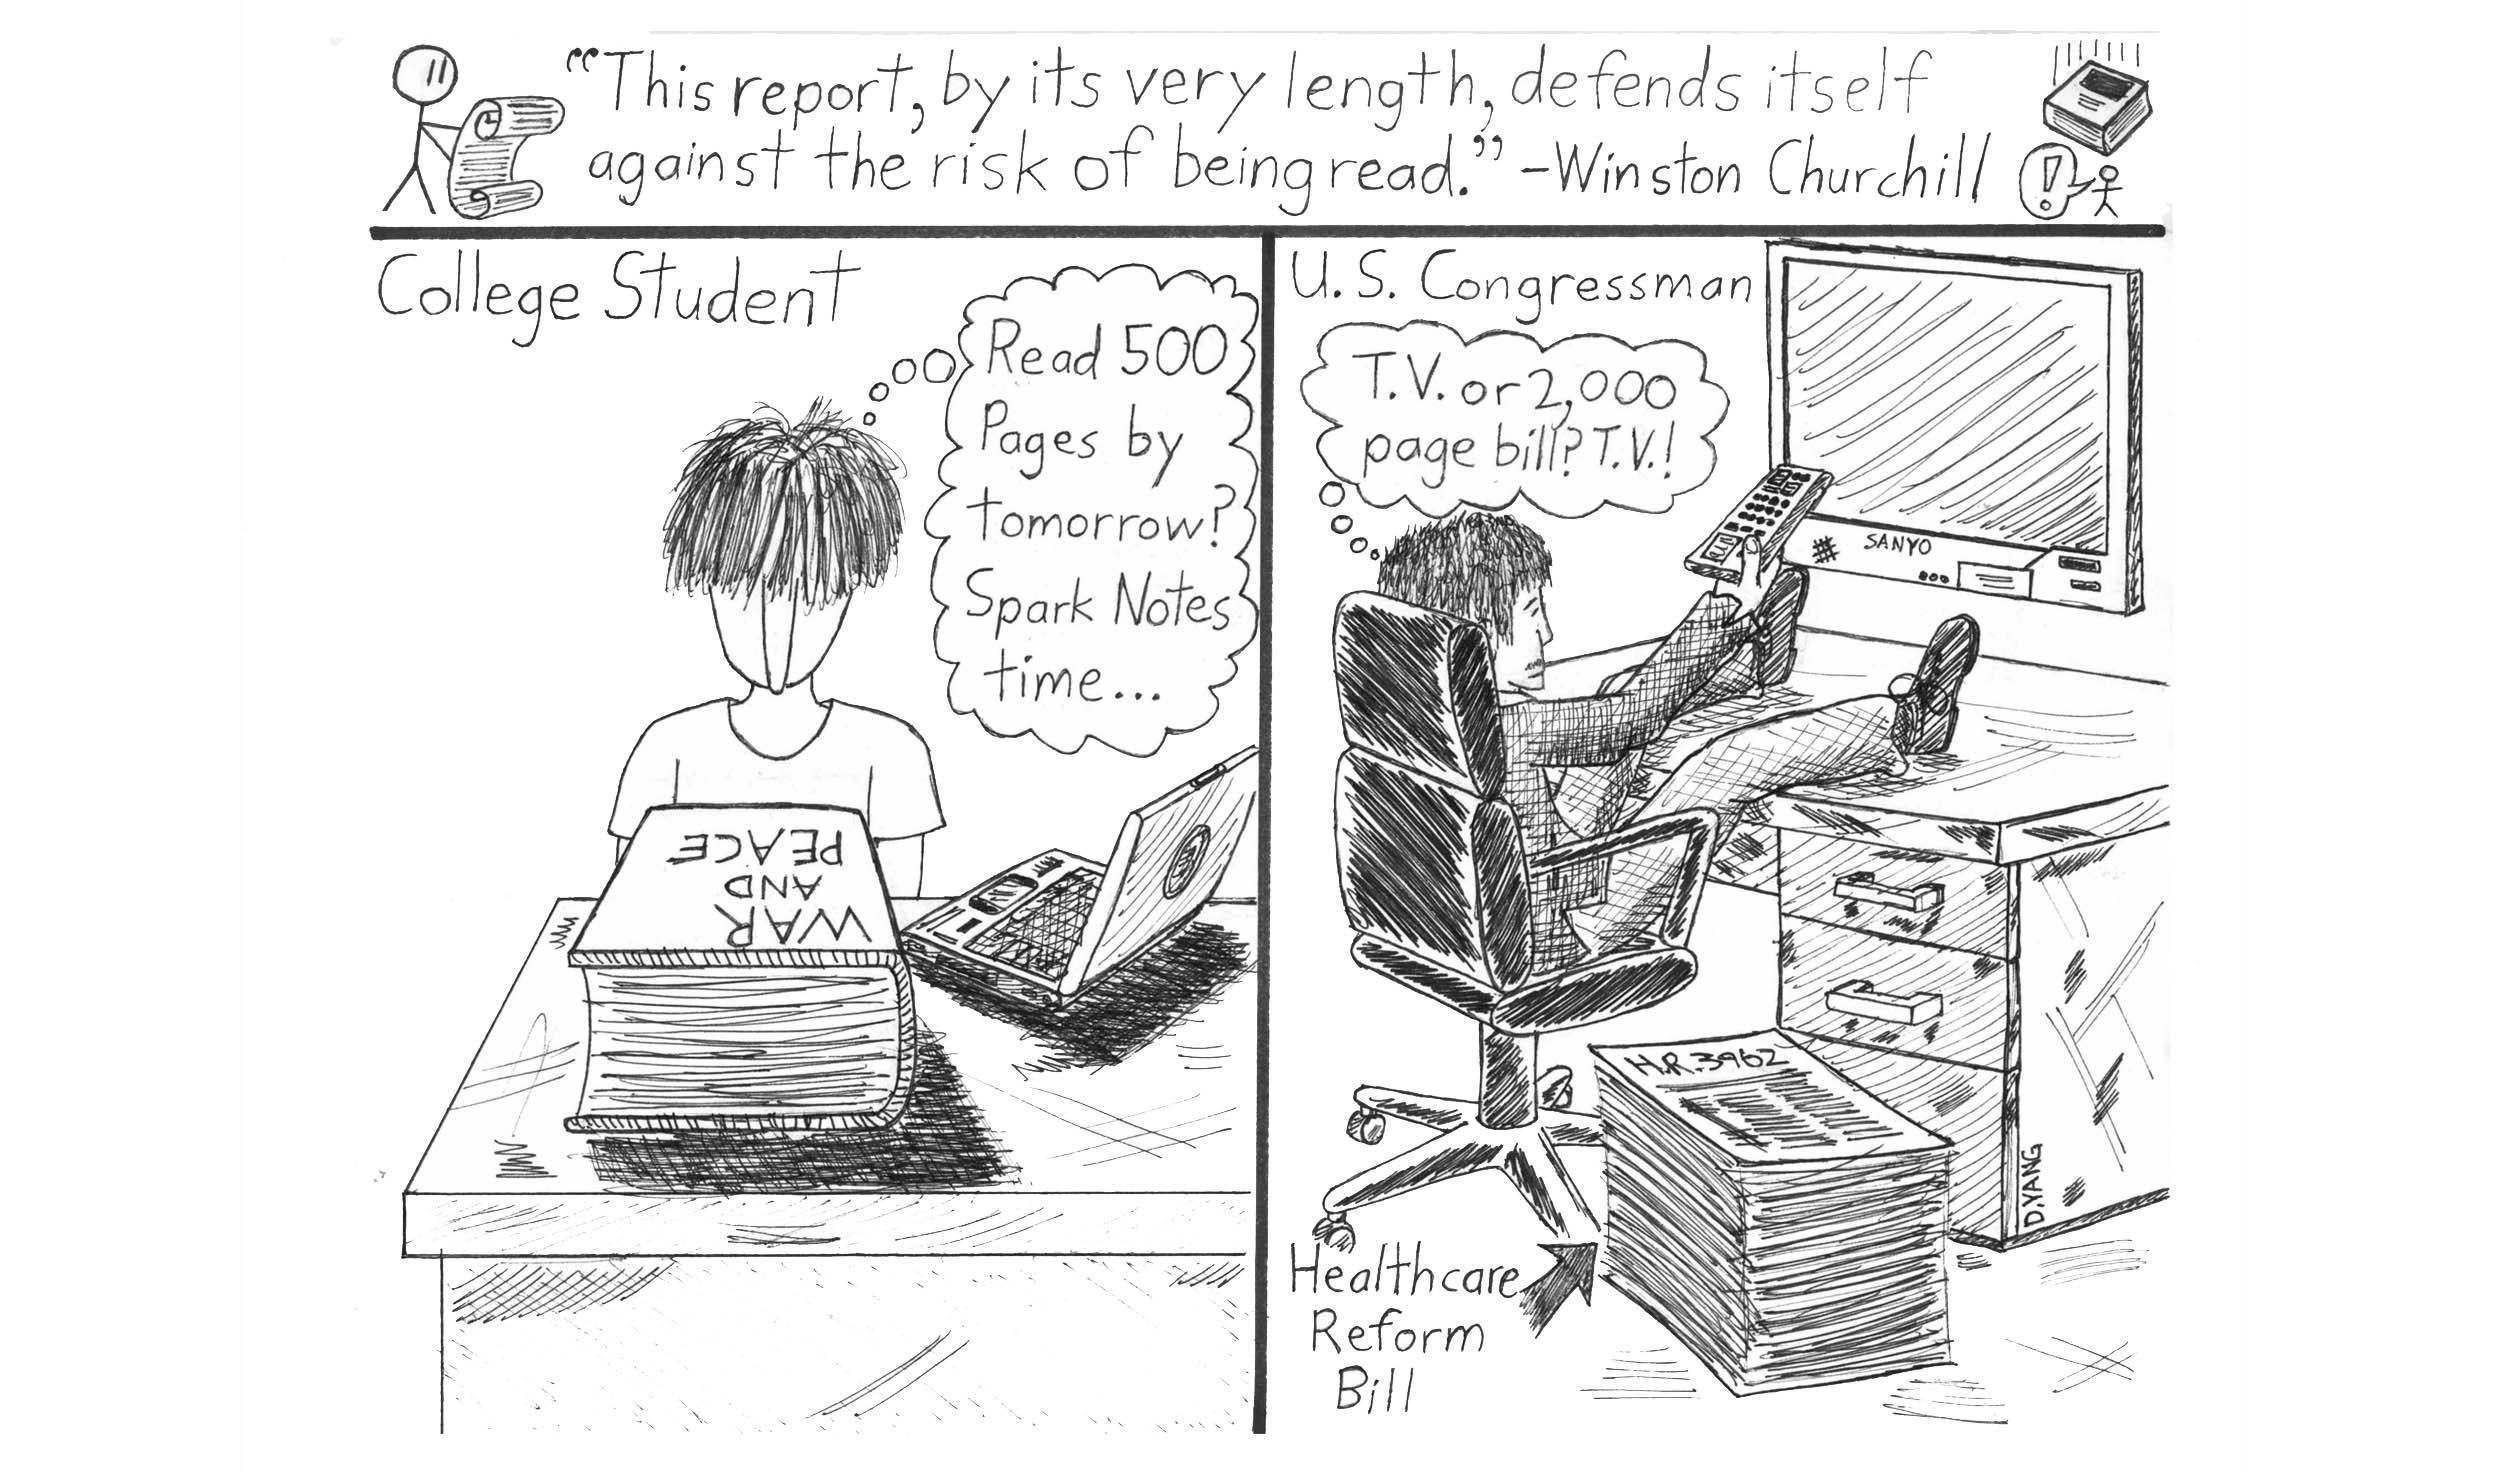 “This report, by its very length, defends itself
against the risk of being read.” -Winston Churchill
!
College Student
Read 500
Pages by
tomorrow?
Spark Notes
time...
WAR
AND
PEACE
U.S. Congressman
T.V. or 2,000
page bill? T.V.!
SANYO
H.R.3962
D.YANG
Healthcare
Reform
Bill